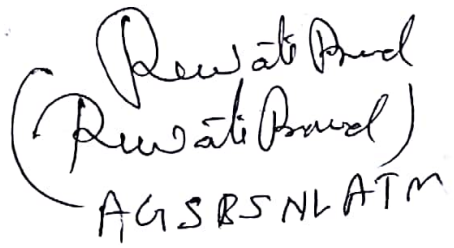 Rewāti Prasad
(Rewāti Prasad)
AGSBSNLATM